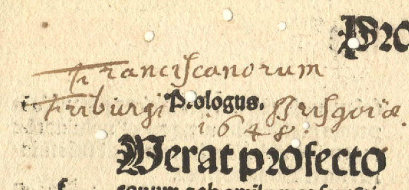 Pro
Franciscanorum
Friburgi Prologus. Brisgoiæ.
1648
Uerat profecto